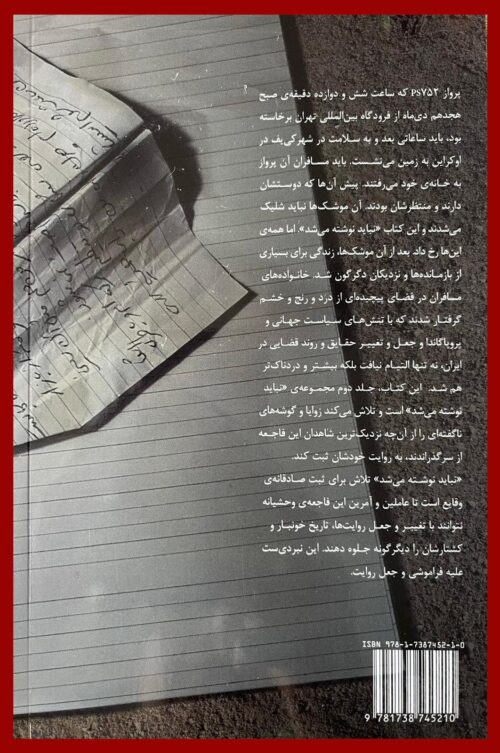 پرواز PS۷۵۲ که ساعت شش و دوازده دقیقه‌ی صبح
هجدهم دی‌ماه از فرودگاه بین‌المللی تهران برخاسته
بود، باید ساعاتی بعد و به سلامت در شهر کی‌یف در
اوکراین به زمین می‌نشست. باید مسافران آن پرواز
به خانه‌ی خود می‌رفتند. پیش آن‌ها که دوستشان
دارند و منتظرشان بودند. آن موشک‌ها نباید شلیک
می‌شدند و این کتاب «نباید نوشته می‌شد». اما همه‌ی
این‌ها رخ داد. بعد از آن موشک‌ها، زندگی برای بسیاری
از بازمانده‌ها و نزدیکان دگرگون شد. خانواده‌های
مسافران در فضای پیچیده‌ای از درد و رنج و خشم
گرفتار شدند که با تنش‌های سیاست جهانی و
پروپاگاندا و جعل و تغییر حقایق و روند قضایی در
ایران، نه تنها التیام نیافت بلکه بیشتر و دردناک‌تر
هم شد. این کتاب، جلد دوم مجموعه‌ی «نباید
نوشته می‌شد» است و تلاش می‌کند زوایا و گوشه‌های
ناگفته‌ای را از آن‌چه نزدیک‌ترین شاهدان این فاجعه
از سر گذراندند، به روایت خودشان ثبت کند.
«نباید نوشته می‌شد» تلاش برای ثبت صادقانه‌ی
وقایع است تا عاملین و آمرین این فاجعه‌ی وحشیانه
نتوانند با تغییر و جعل روایت‌ها، تاریخ خونبار و
کشتارشان را دیگرگونه جلوه دهند. این نبردی‌ست
علیه فراموشی و جعل روایت.
ISBN 978-1-7387452-1-0
9 781738 745210